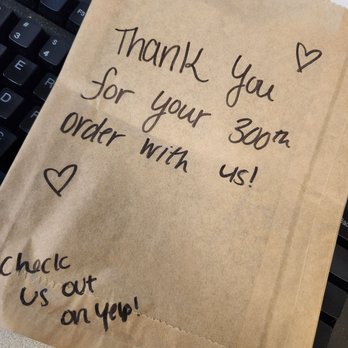 Thank you
for your 300th
order with us!
Check
us out
on yelp!